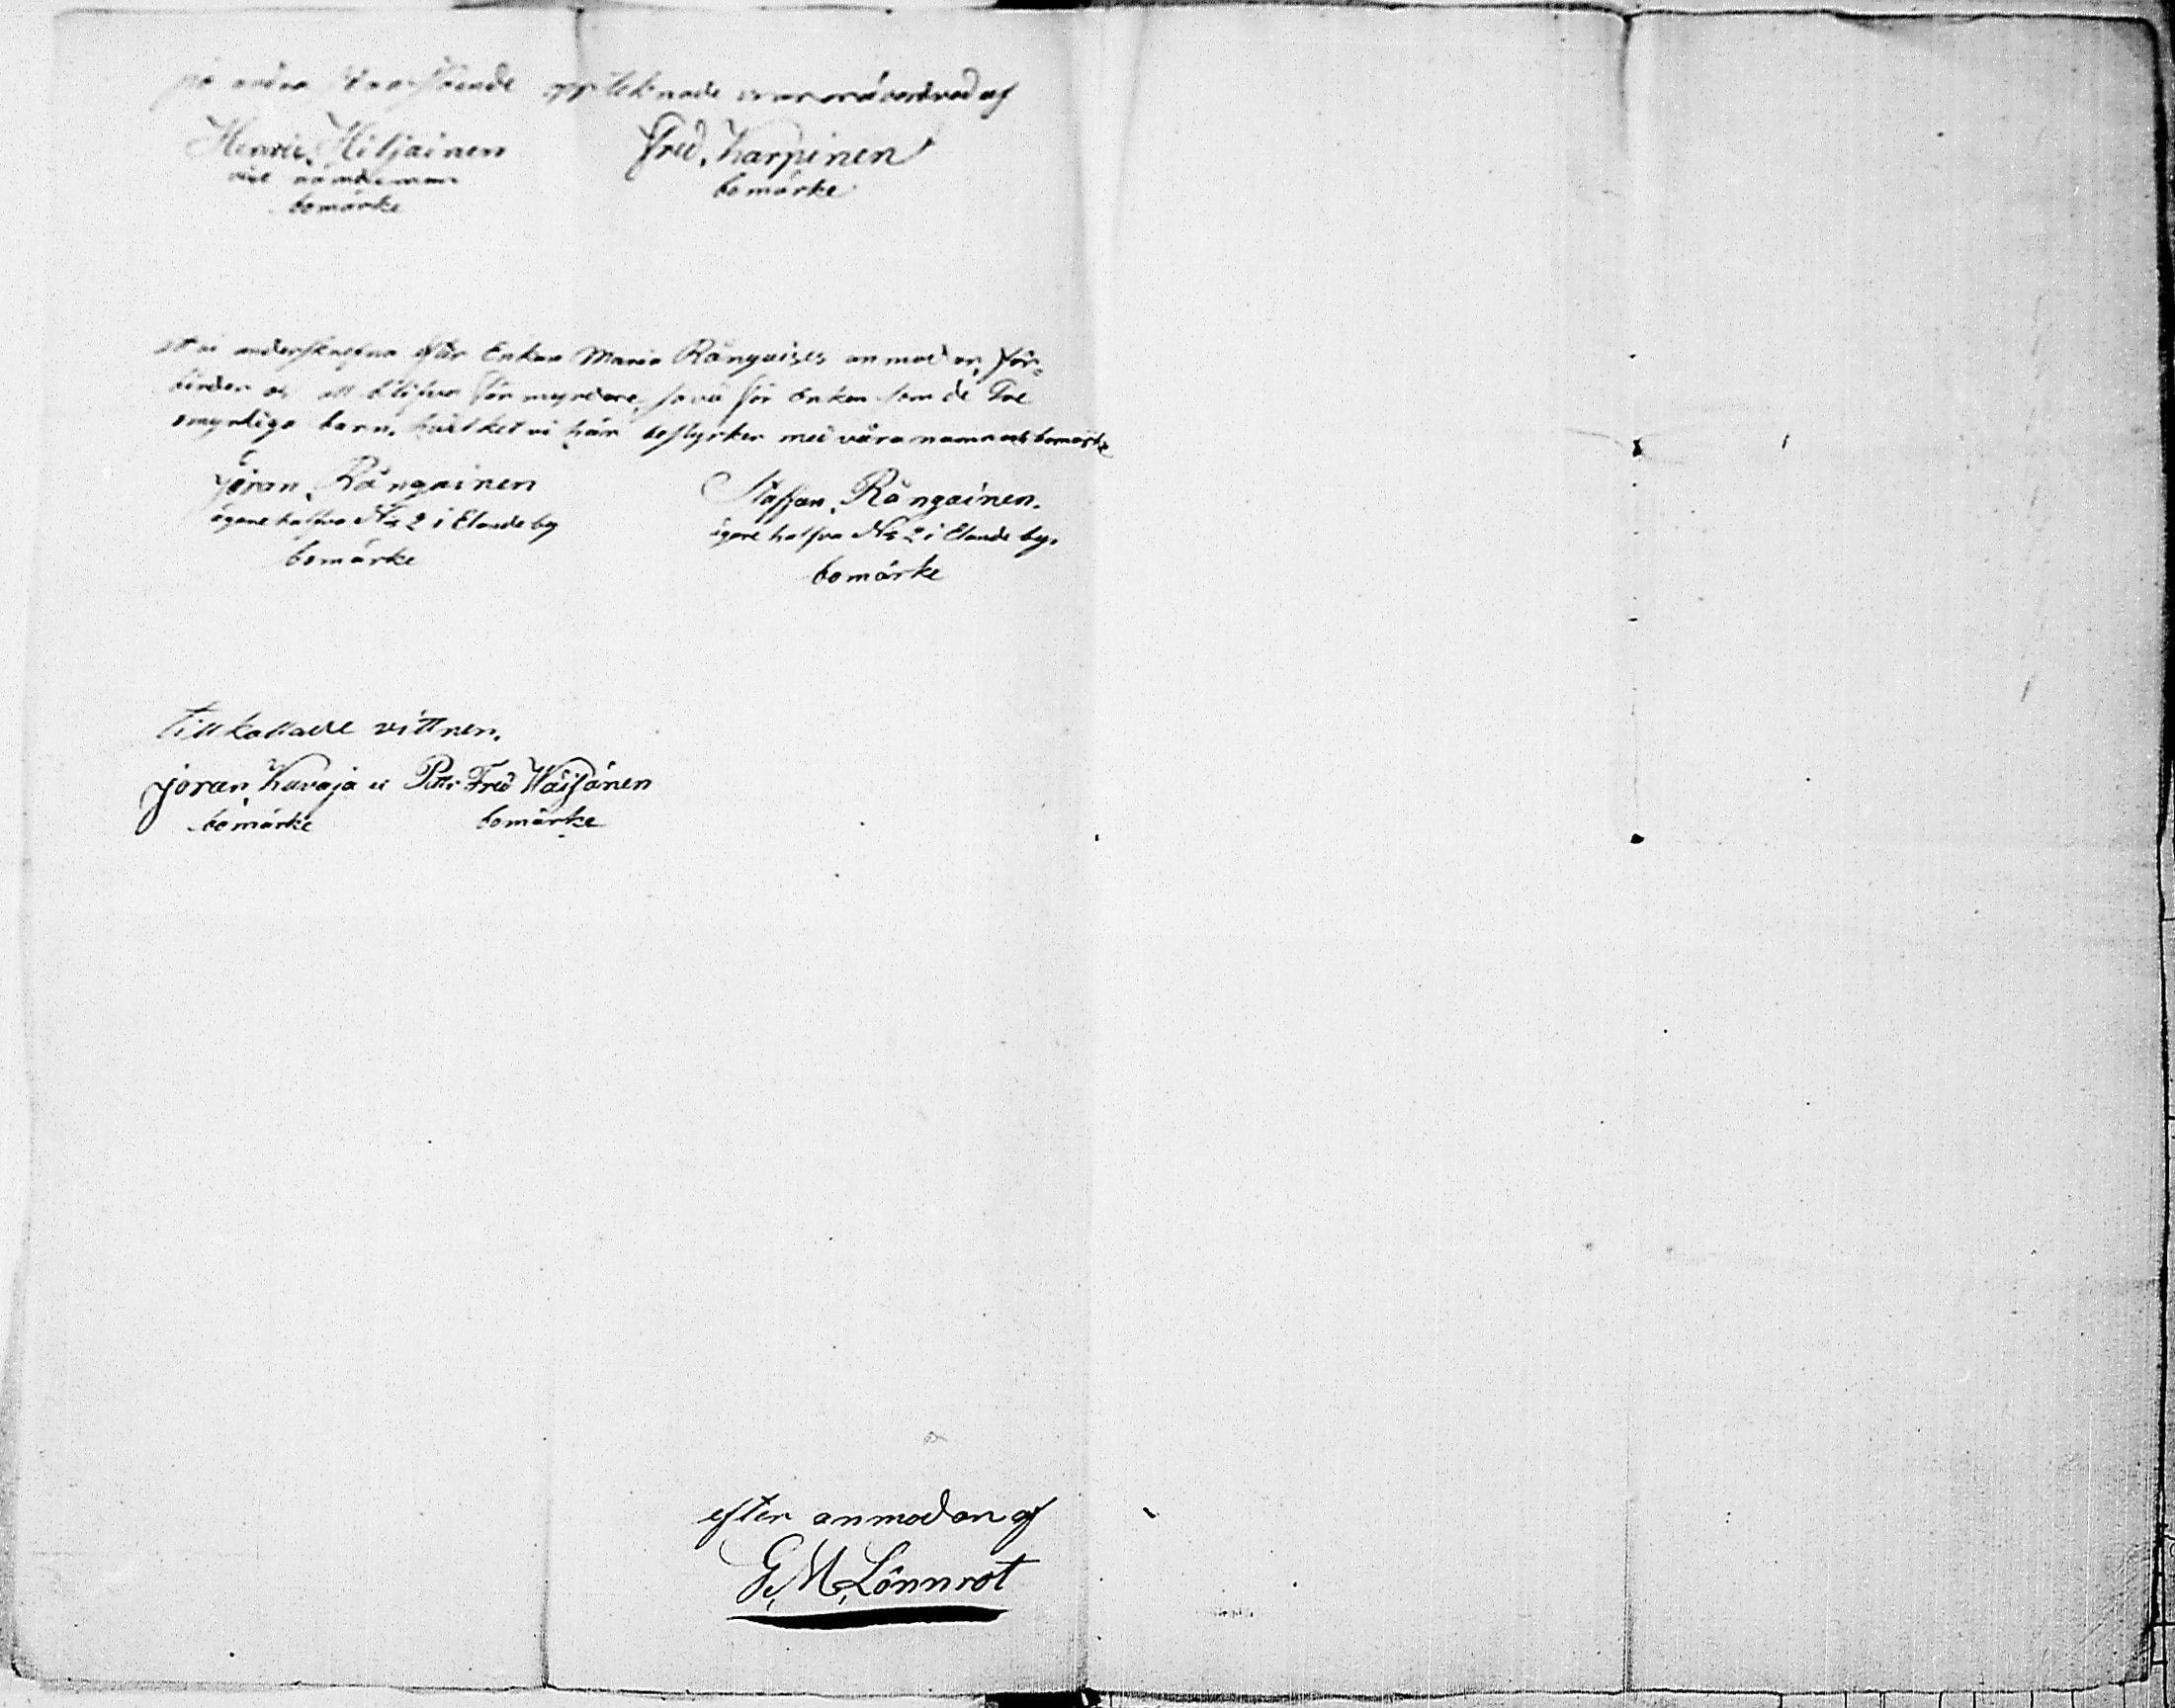 på andra förestående oppteknade varor värderad af
Henric, Hiljainen
vise nämdeman
bomärke
Fred, Karpinen
bomärke
At vi underskrefna efter Enkan Maria Rångaises anmodan, för=
binder os att blifva förmyndare, så väl för Enkan som de Tve
omyndiga barn, hvilket vi här bestyrker med våra namn och bomärke
Jöran, Rångainen
ägare halfva No 2 i Elande by
bomärke
Staffan, Rångainen.
ägare halfva No 2 i Elande by.
bomärke
Tillkallade vittnen.
Jöran, Kavaja
bomärke
Petr: Fred Wäisänen
bomärke
efter anmodan af
G, M, Lönnrot